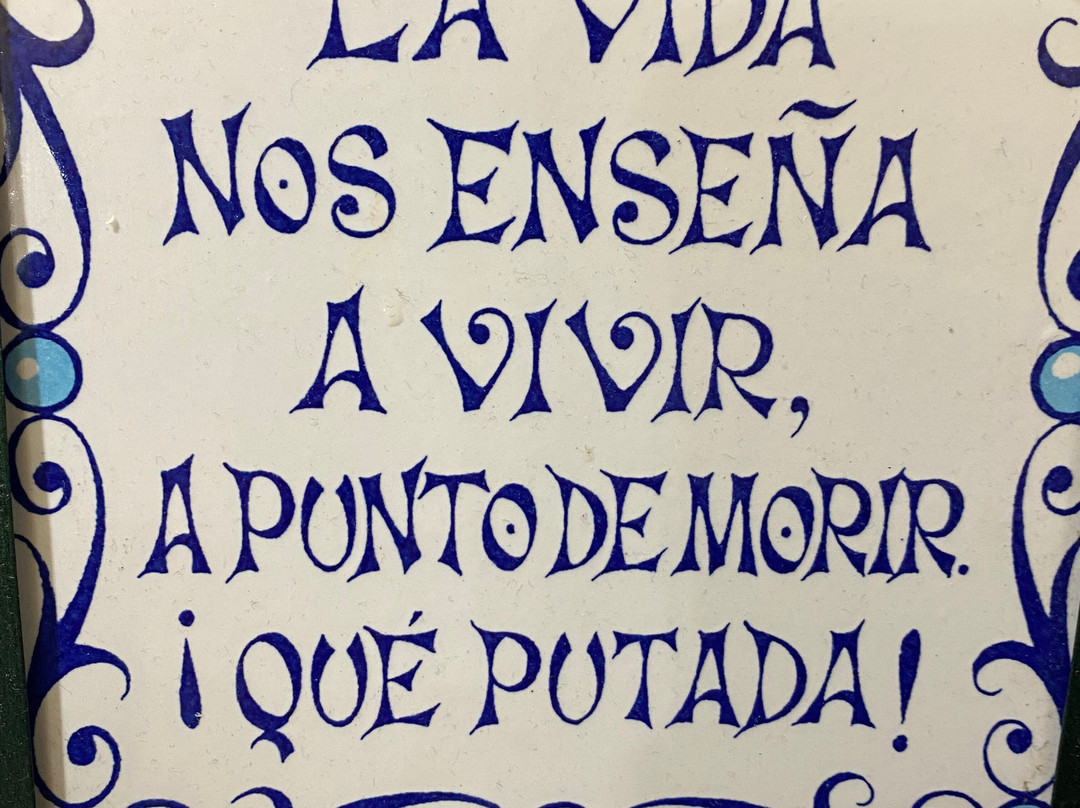 LA VIDA
NOS ENSEÑA
A VIVIR,
A PUNTO DE MORIR.
¡QUÉ PUTADA!